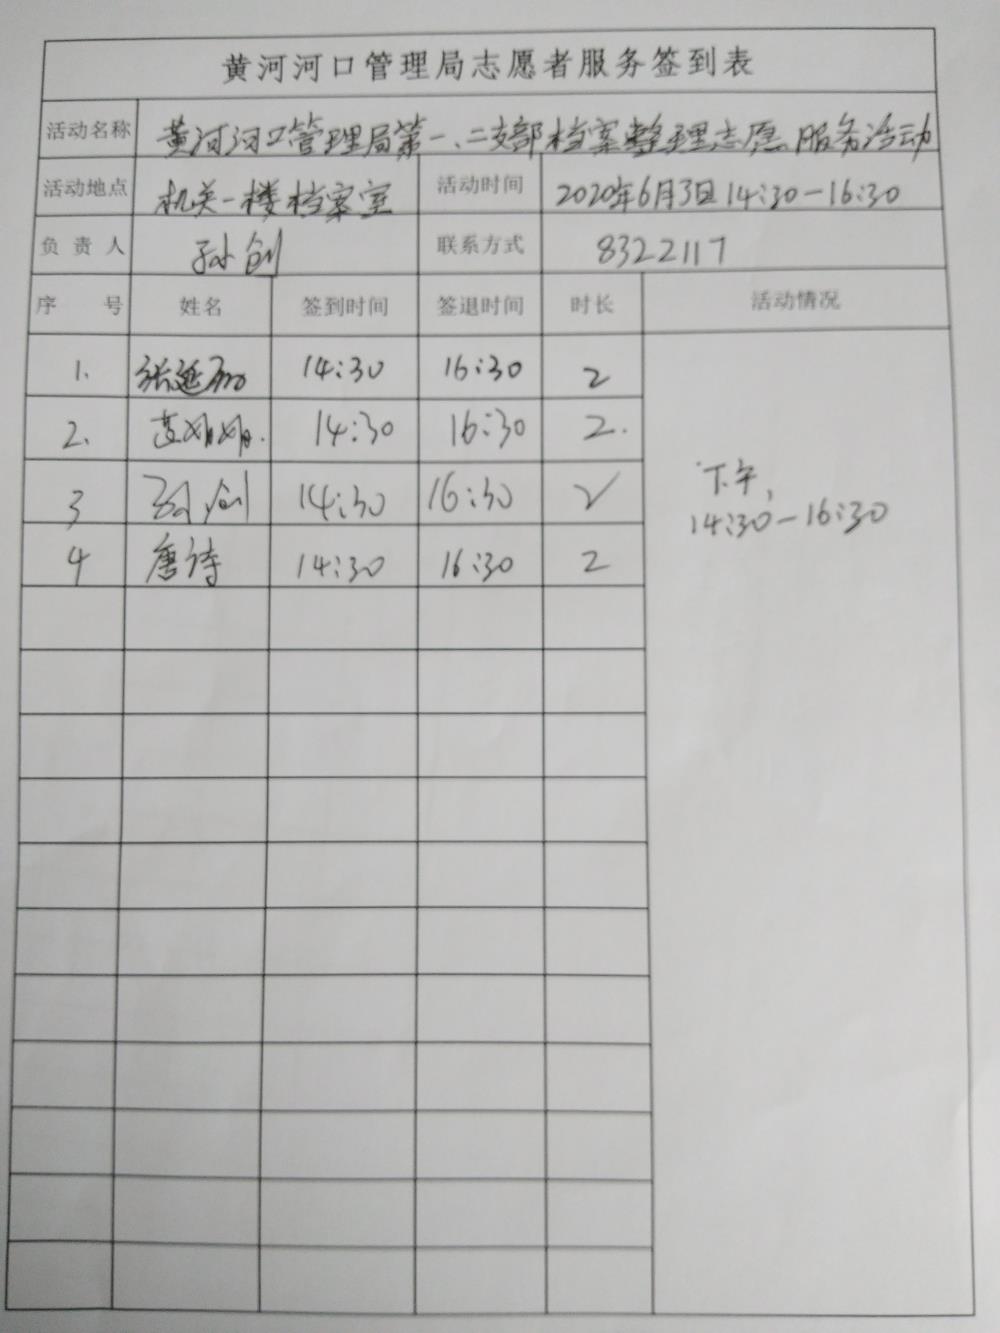 黄河河口管理局志愿者服务签到表
活动名称 黄河河口管理局第一、二支部档案整理志愿服务活动
活动地点 机关一楼档案室 活动时间 2020年6月3日14:30-16:30
负责人 孙创 联系方式 8322117
序号 姓名 签到时间 签退时间 时长 活动情况
1. 张延 14:30 16:30 2
2. 姗姗. 14:30 16:30 2.
3 孙创 14:30 16:30 2
下午,
14:30-16:30
4 唐诗 14:30 16:30 2